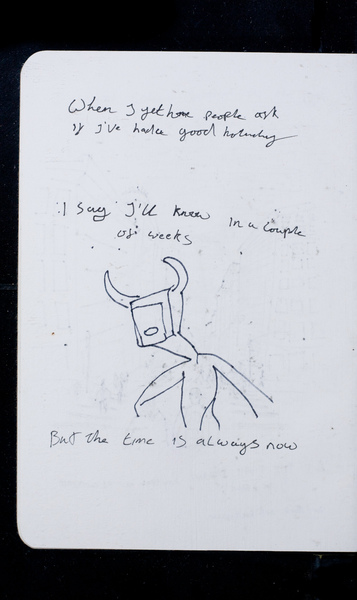 When I get home people ask
if I've had a good holiday
I say I'll know in a couple
of weeks
But the time is always now